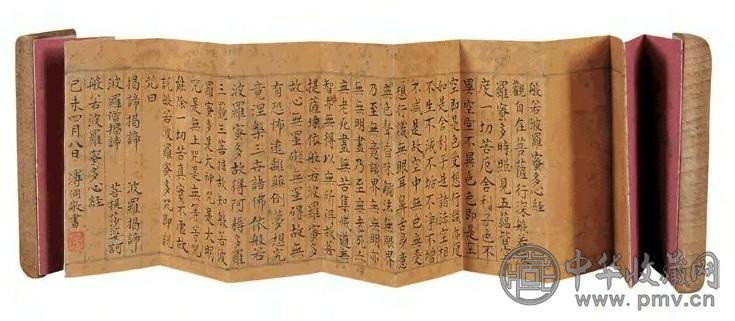 般若波羅蜜多心經
觀自在菩薩行深般若波
羅蜜多時照見五蘊皆空
度一切苦厄舍利子色不
異空空不異色色即是空
空即是色受想行識亦復
如是舍利子是諸法空相
不生不滅不垢不淨不增
不減是故空中無色無受
想行識無眼耳鼻舌身意
無色聲香味觸法無眼界
乃至無意識界無無明亦
無無明盡乃至無老死亦
無老死盡無苦集滅道無
智亦無得以無所得故菩
提薩埵依般若波羅蜜多
故心無罣礙無罣礙故無
有恐怖遠離顛倒夢想究
竟涅槃三世諸佛依般若
波羅蜜多故得阿耨多羅
三藐三菩提故知般若波
羅蜜多是大神咒是大明
咒是無上咒是無等等咒
能除一切苦真實不虛故
說般若波羅蜜多咒即說
咒曰
揭諦揭諦 波羅揭諦
波羅僧揭諦 菩提莎婆訶
般若波羅蜜多心經
己未四月八日 溥侗敬書
中华收藏网
www.pmv.cn